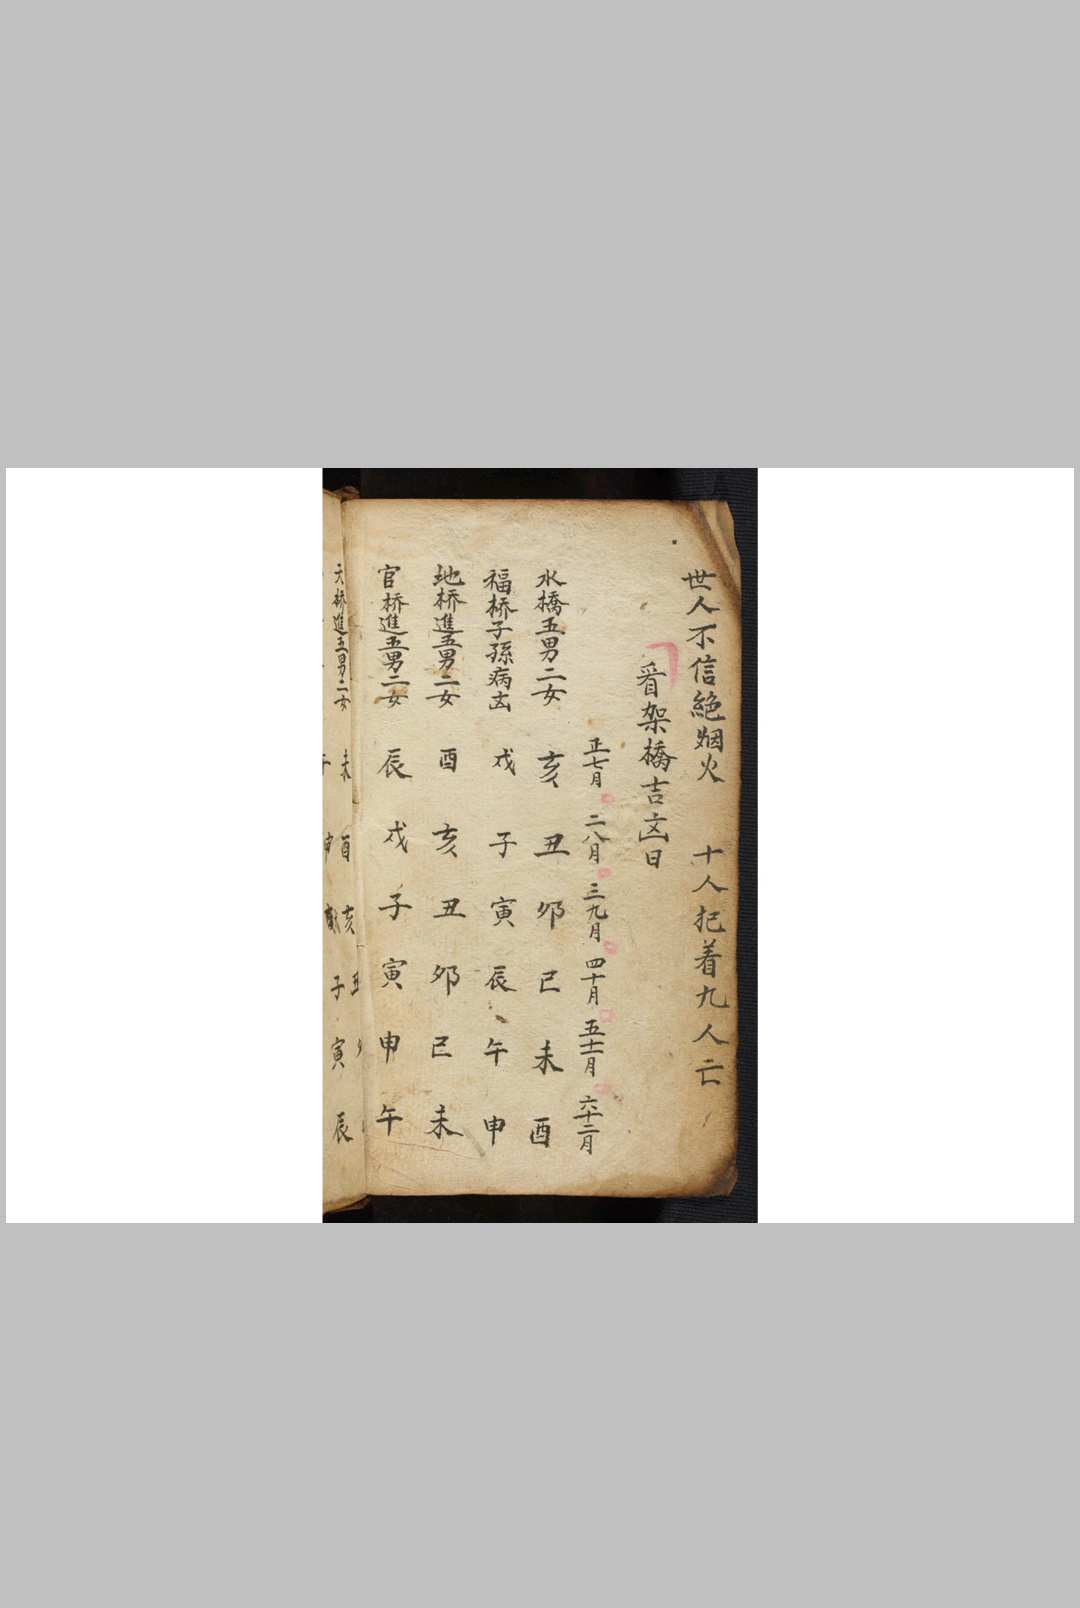 世人不信絶烟火 十人把着九人亡
看架橋吉凶日
正七月 二八月 三九月 四十月 五十一月 六十二月
水橋五男二女 亥 丑 卯 巳 未 酉
福桥子孫病凶 戌 子 寅 辰 午 申
地桥進五男二女 酉 亥 丑 卯 巳 未
官桥進五男二女 辰 戌 子 寅 申 午
天桥進五男二女 未 酉 亥 丑
子 申 子 寅 辰